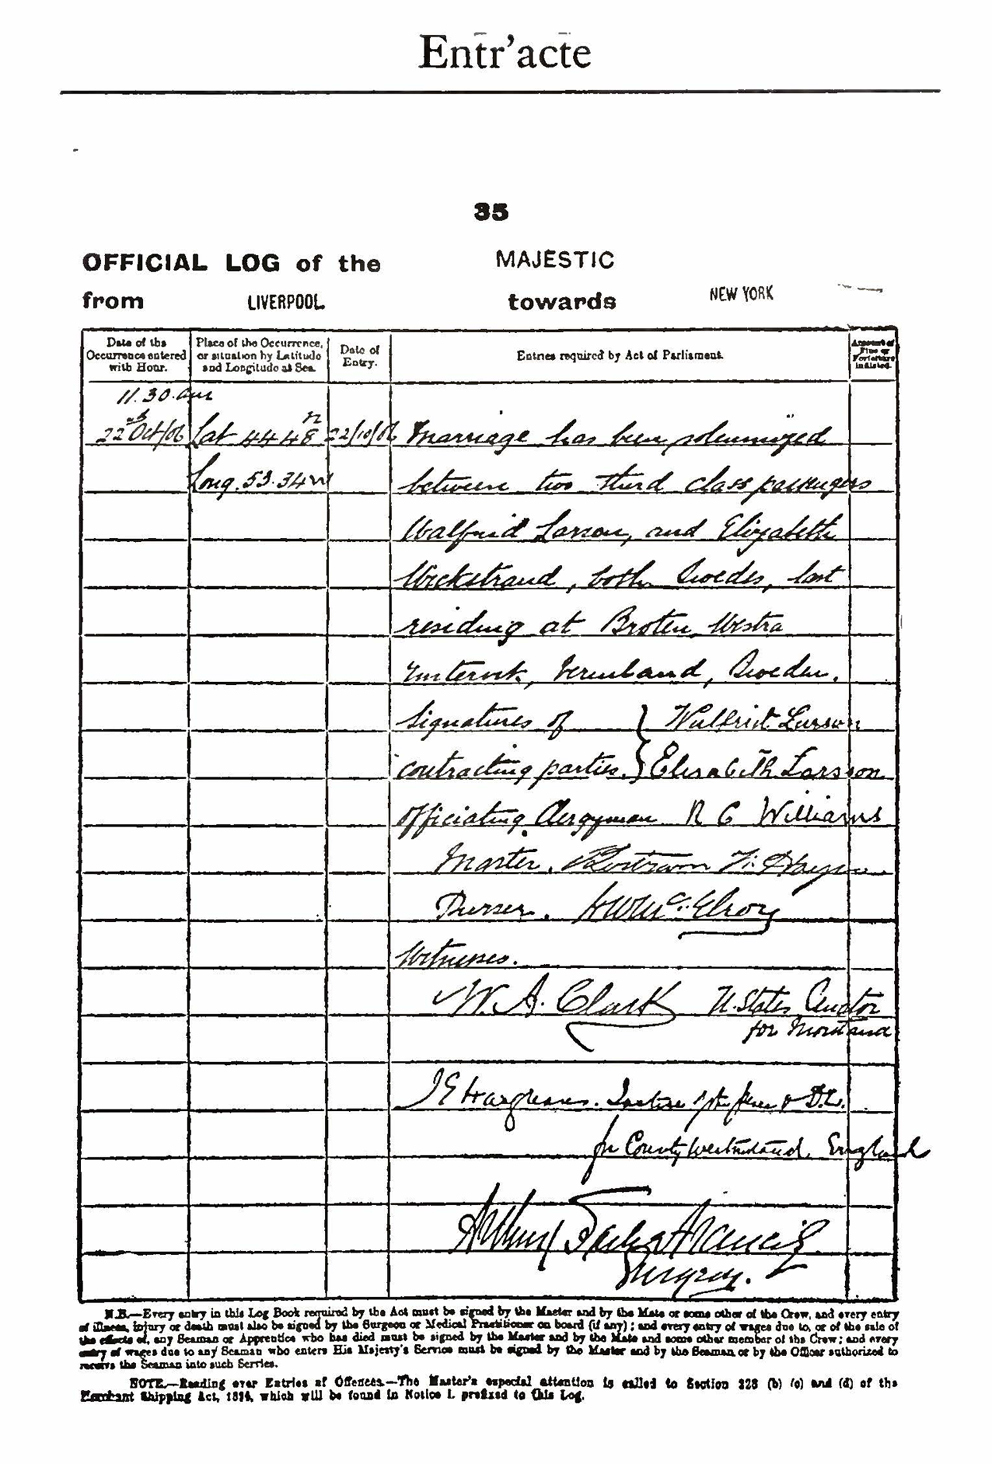 Entr'acte
35
OFFICIAL LOG of the MAJESTIC
from LIVERPOOL towards NEW YORK
Date of the Occurrence entered with Hour.
Place of the Occurrence, or situation by Latitude and Longitude at Sea.
Date of Entry.
Entries required by Act of Parliament.
Amount of Fine or Forfeiture inflicted.
11.30 am
22nd Oct/06 Lat 44 48 n 22/10/06 Marriage has been solemnized
Long. 53.34 w between two third class passengers
Walfrid Larson, and Elizabeth
Wickstrand, both Swedes, last
residing at Broten, Westra
Vermland, Sweden.
Signatures of } Walfrid Larson
contracting parties. } Elisabeth Larsson
Officiating Clergyman R C Williams
Master. Bertram F. Hayes
Purser. HW McElroy
Witnesses.
W. A. Clark U. States Senator
for Montana
Justice of the peace & D.L.
for County Westmorland. England
Arthur Francis
Surgeon.
N.B.—Every entry in this Log Book required by the Act must be signed by the Master and by the Mate or some other of the Crew, and every entry
of illness, injury or death must also be signed by the Surgeon or Medical Practitioner on board (if any); and every entry of wages due to, or of the sale of
the effects of, any Seaman or Apprentice who has died must be signed by the Master and by the Mate and some other member of the Crew; and every
entry of wages due to any Seaman who enters His Majesty's Service must be signed by the Master and by the Seaman or by the Officer authorized to
receive the Seaman into such Service.
NOTE.—Reading over Entries of Offences.—The Master's especial attention is called to Section 228 (b) (c) and (d) of the
Merchant Shipping Act, 1894, which will be found in Notice I. prefixed to this Log.